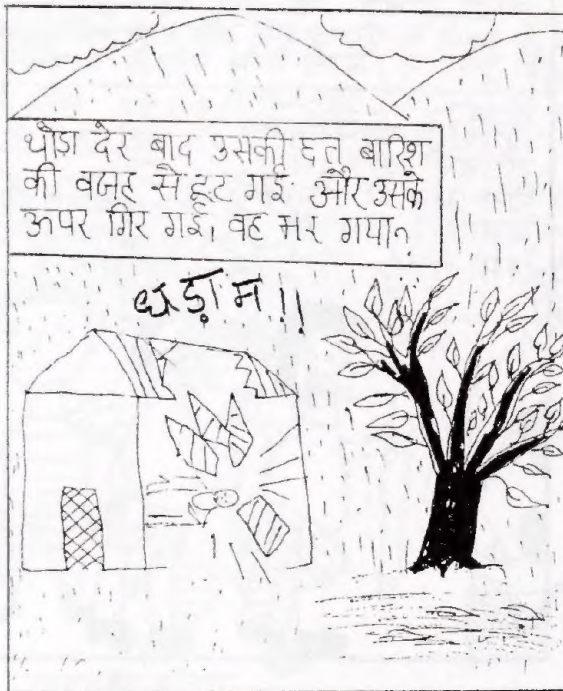 थोड़ा देर बाद उसकी छत बारिश
की वजह से टूट गई और उसके
ऊपर गिर गई। वह मर गया।
धड़ाम!!